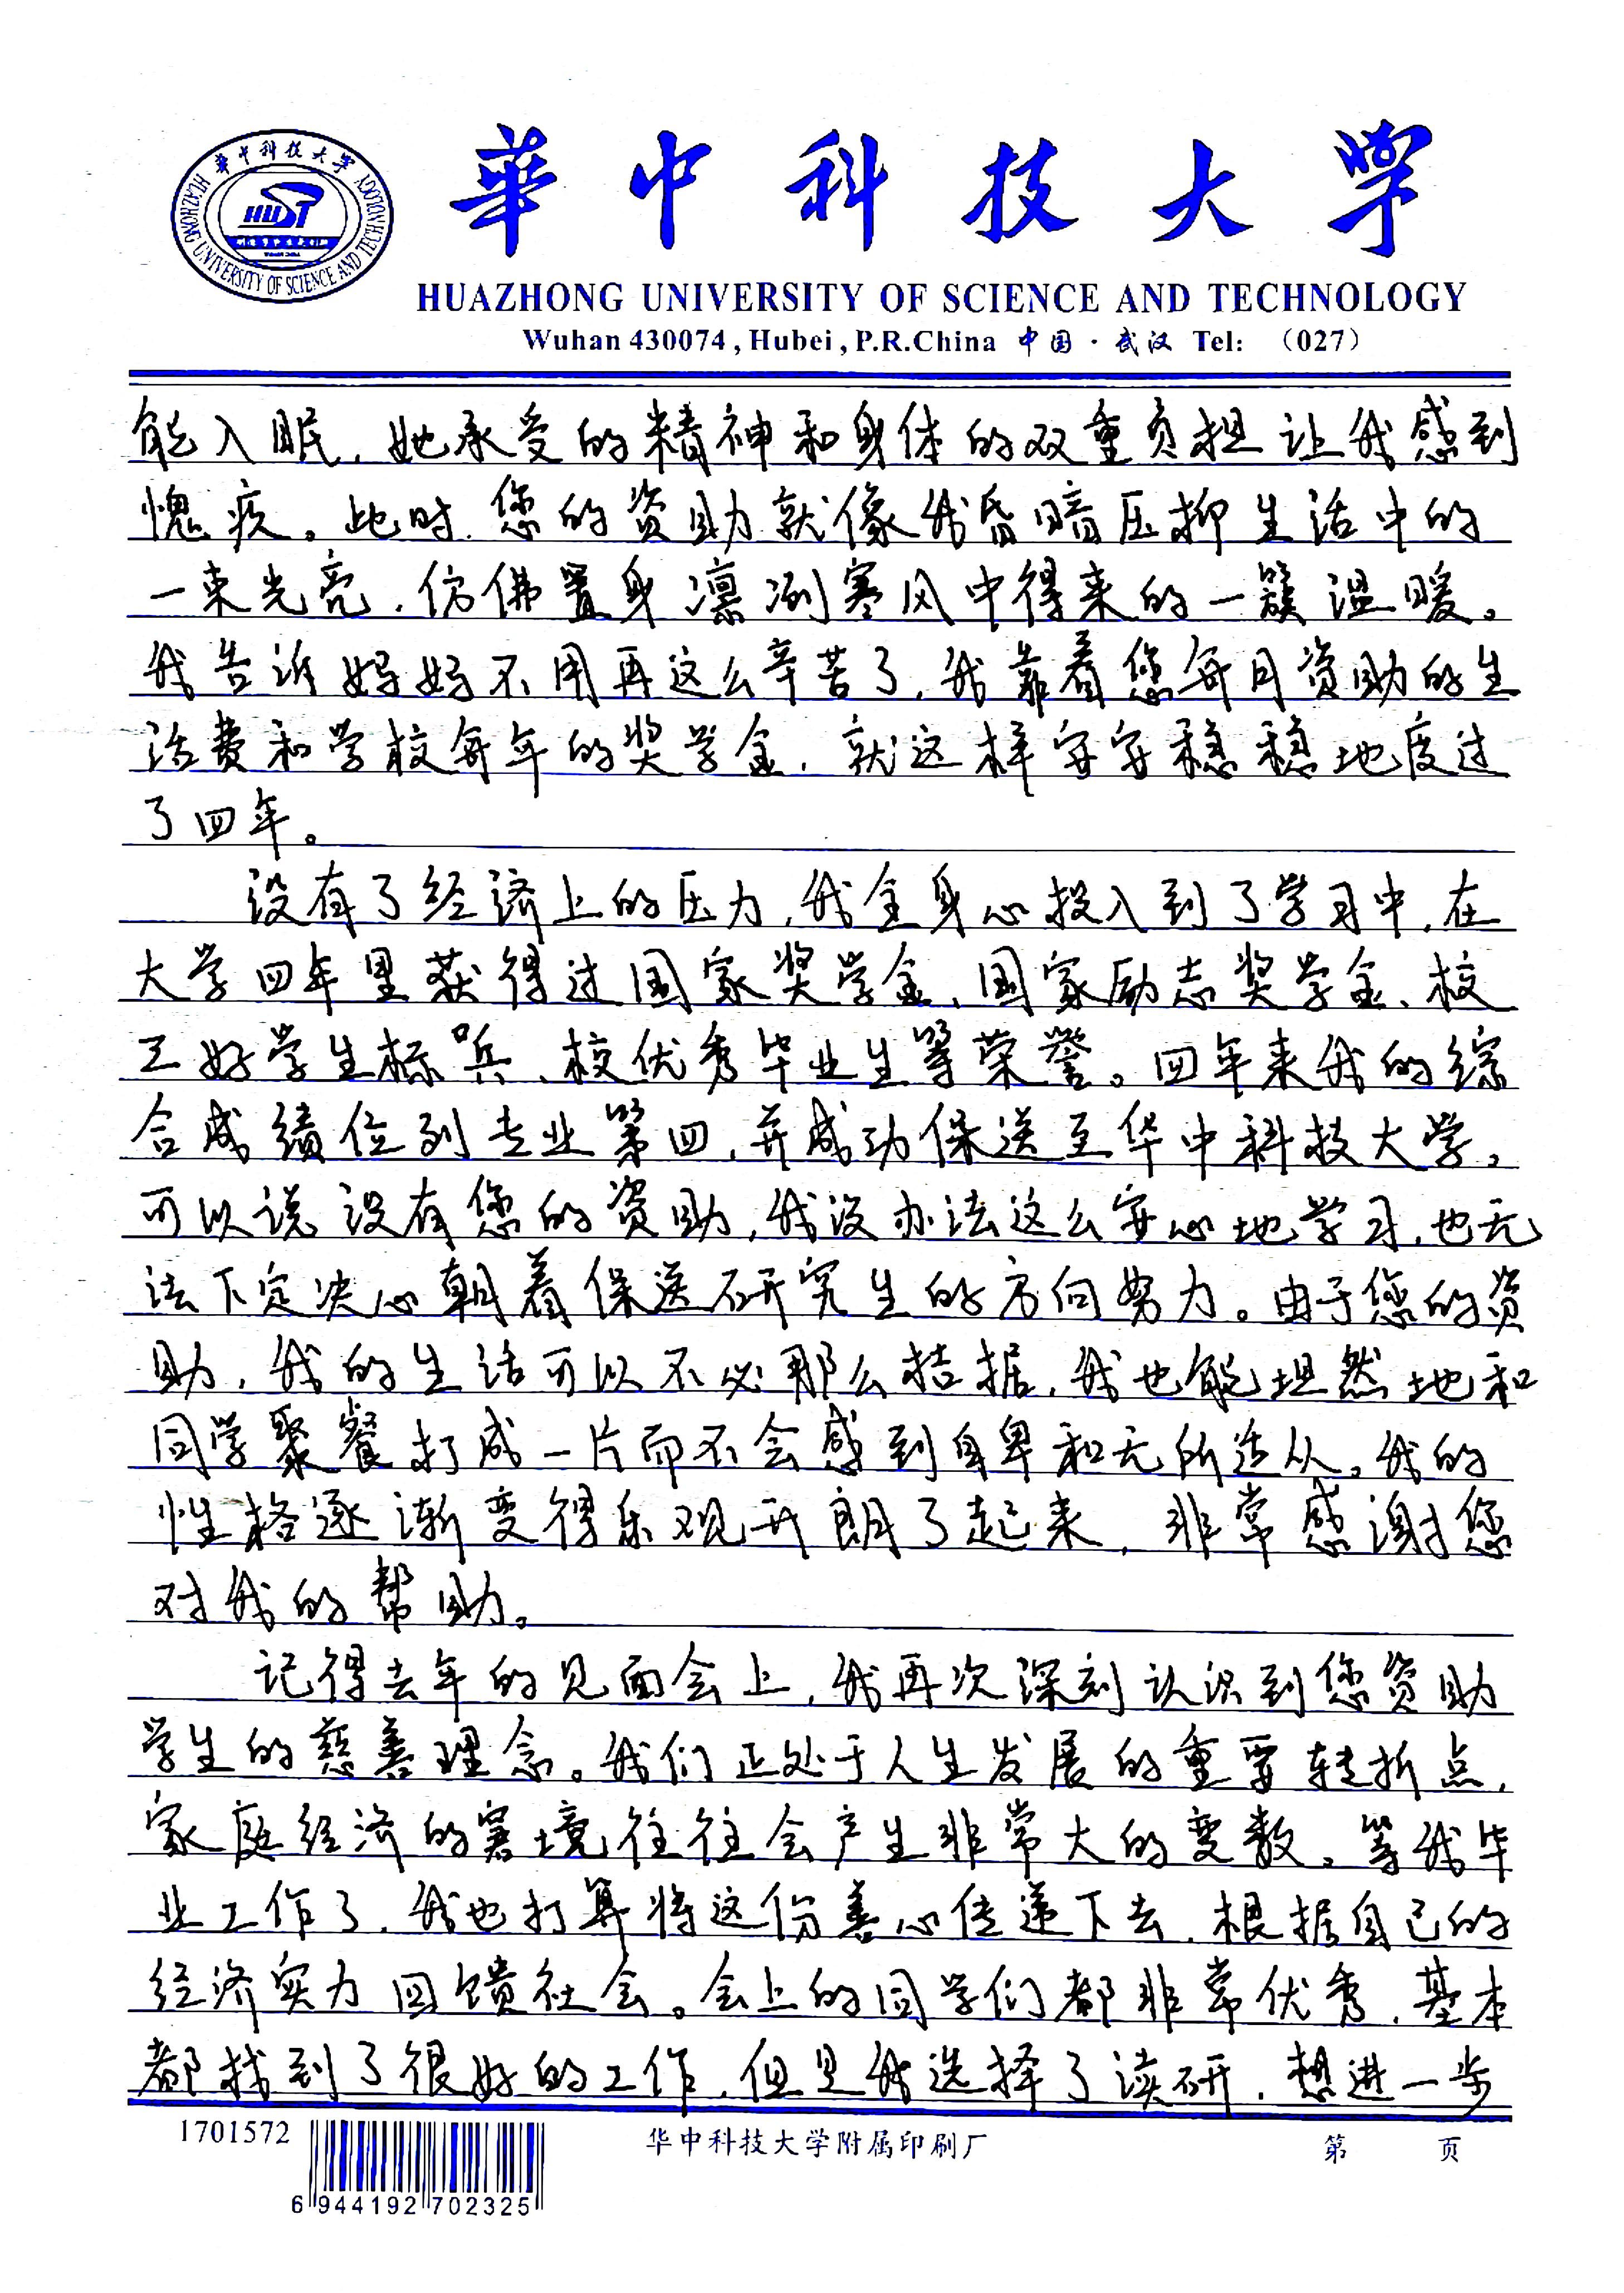 華中科技大学
HUAZHONG UNIVERSITY OF SCIENCE AND TECHNOLOGY
HUST
華中科技大学
HUAZHONG UNIVERSITY OF SCIENCE AND TECHNOLOGY
Wuhan 430074, Hubei, P.R.China 中国·武汉 Tel: （027）
能入眠，她承受的精神和身体的双重负担让我感到
愧疚。此时，您的资助就像我昏暗压抑生活中的
一束光亮，仿佛置身凛冽寒风中得来的一簇温暖。
我告诉妈妈不用再这么辛苦了，我靠着您每月资助的生
活费和学校每年的奖学金，就这样安安稳稳地度过
了四年。
没有了经济上的压力，我全身心投入到了学习中，在
大学四年里获得过国家奖学金、国家励志奖学金、校
三好学生标兵、校优秀毕业生等荣誉。四年来我的综
合成绩位列专业第四，并成功保送至华中科技大学。
可以说没有您的资助，我没办法这么安心地学习，也无
法下定决心朝着保送研究生的方向努力。由于您的资
助，我的生活可以不必那么拮据，我也能坦然地和
同学聚餐打成一片而不会感到自卑和无所适从。我的
性格逐渐变得乐观开朗了起来，非常感谢您
对我的帮助。
记得去年的见面会上，我再次深刻认识到您资助
学生的慈善理念。我们正处于人生发展的重要转折点，
家庭经济的窘境往往会产生非常大的变数。等我毕
业工作了，我也打算将这份善心传递下去，根据自己的
经济实力回馈社会。会上的同学们都非常优秀，基本
都找到了很好的工作，但是我选择了读研，想进一步
1701572
6 944192 702325
华中科技大学附属印刷厂
第 页